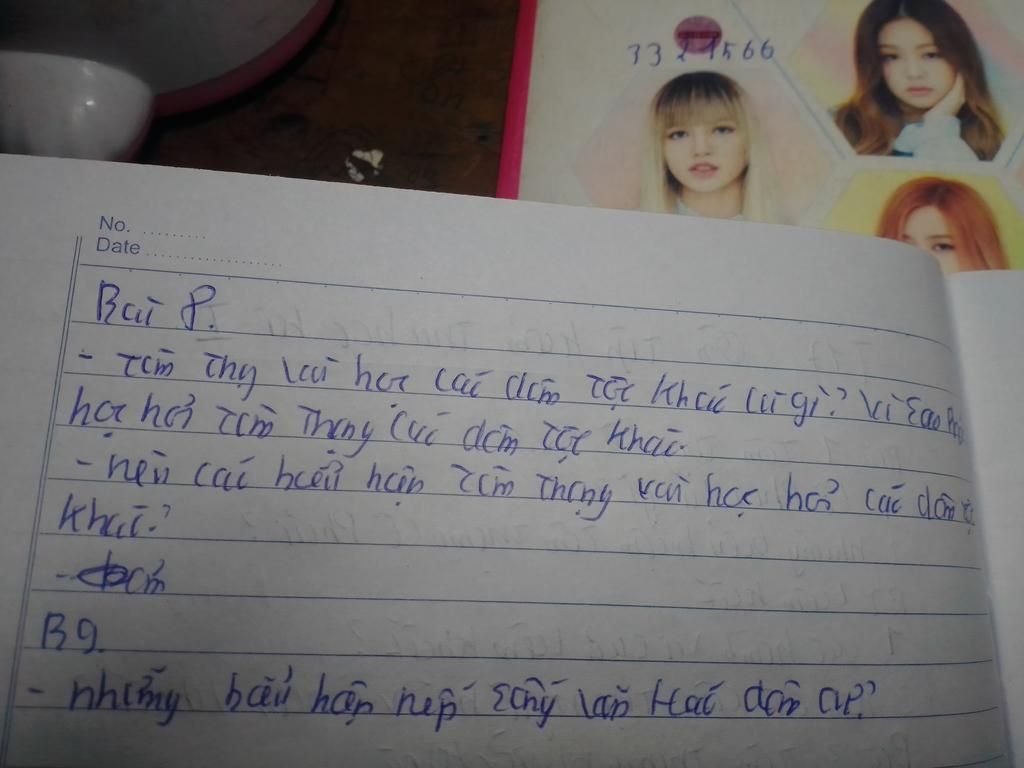 3321566
No. ..........
Date ....................
Bài 8.
- Tôn Thọ Vai học các dân tộc khác là gì? Vì Sao Phải
học hỏi Tôn Trọng các dân tộc khác.
- nêu các biểu hiện Tôn Trọng vai học hỏi các dân tộc
khác?
B9.
- những biểu hiện nếp sống văn Hoá dân cư?